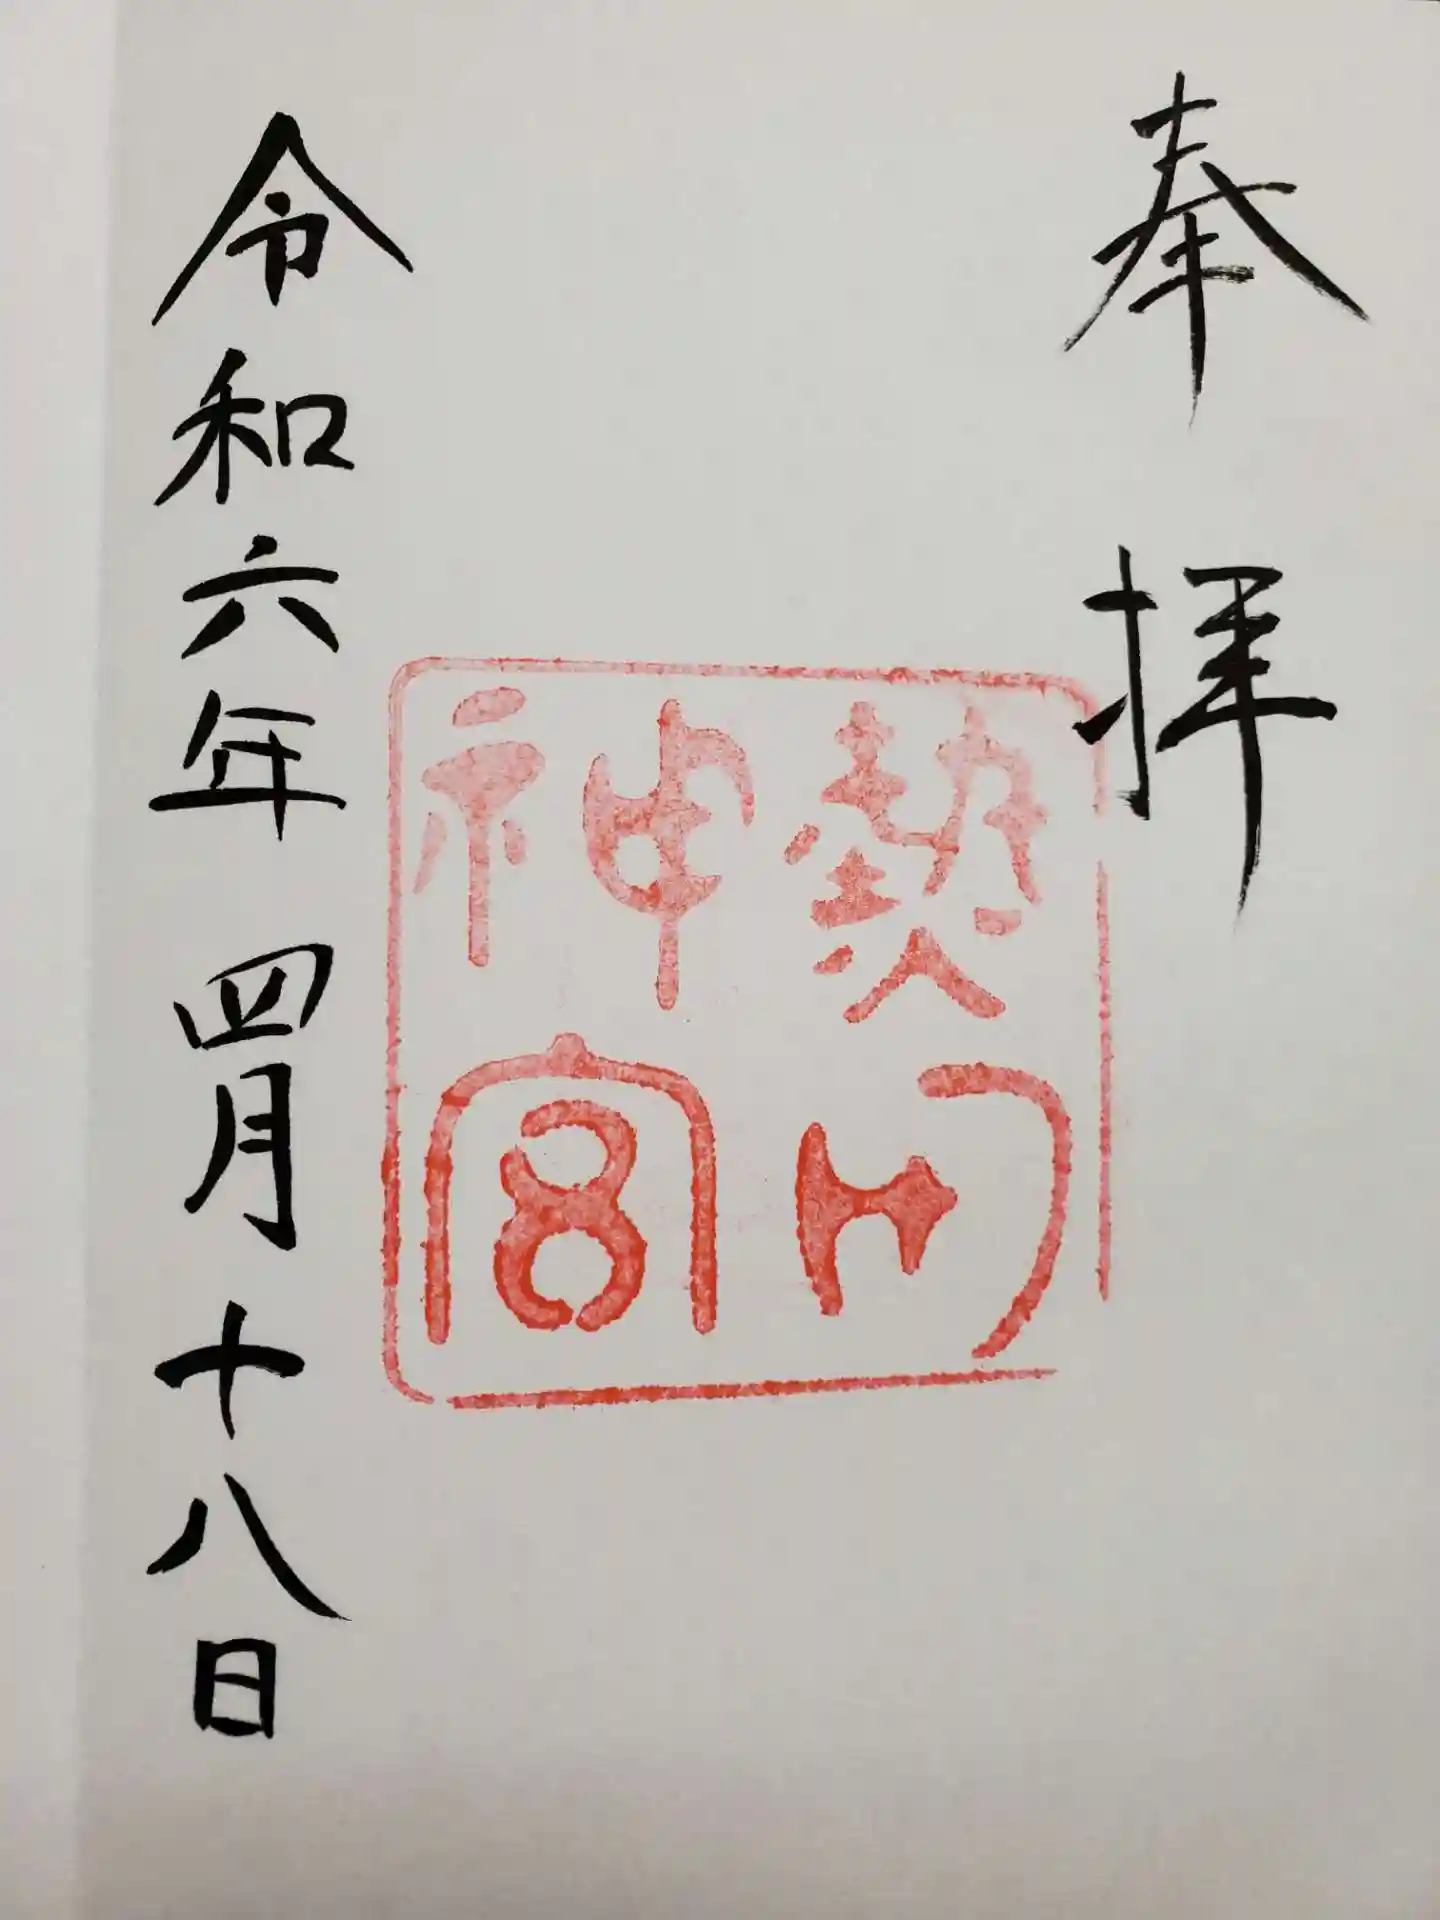 奉拝
熱田
神宮
令和六年四月十八日